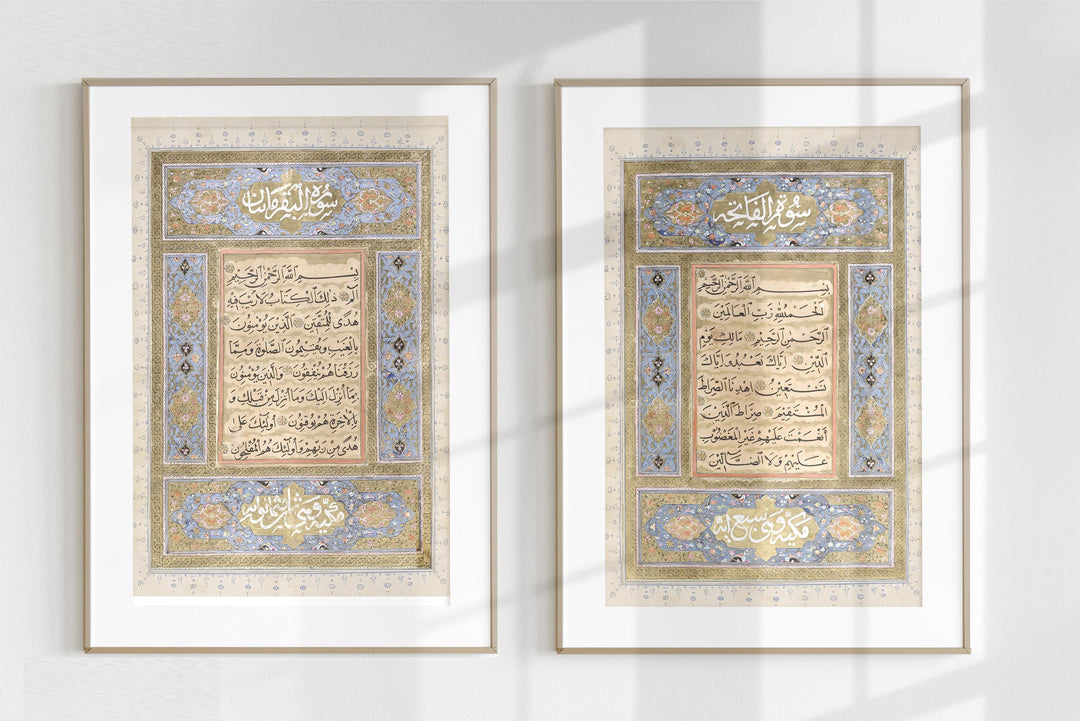 سورة الفاتحة
بسم الله الرحمن الرحيم
الحمد لله رب العالمين
الرحمن الرحيم مالك يوم
الدين اياك نعبد واياك
نستعين اهدنا الصراط
المستقيم صراط الذين
أنعمت عليهم غير المغضوب
عليهم ولا الضالين
مكية وهي سبع اية
سورة البقرة مائتان
بسم الله الرحمن الرحيم
الم ذلك الكتاب لا ريب فيه
هدى للمتقين الذين يؤمنون
بالغيب ويقيمون الصلوة ومما
رزقناهم ينفقون والذين يؤمنون
بما أنزل اليك وما أنزل من قبلك و
بالآخرة هم يوقنون أولئك على
هدى من ربهم وأولئك هم المفلحون